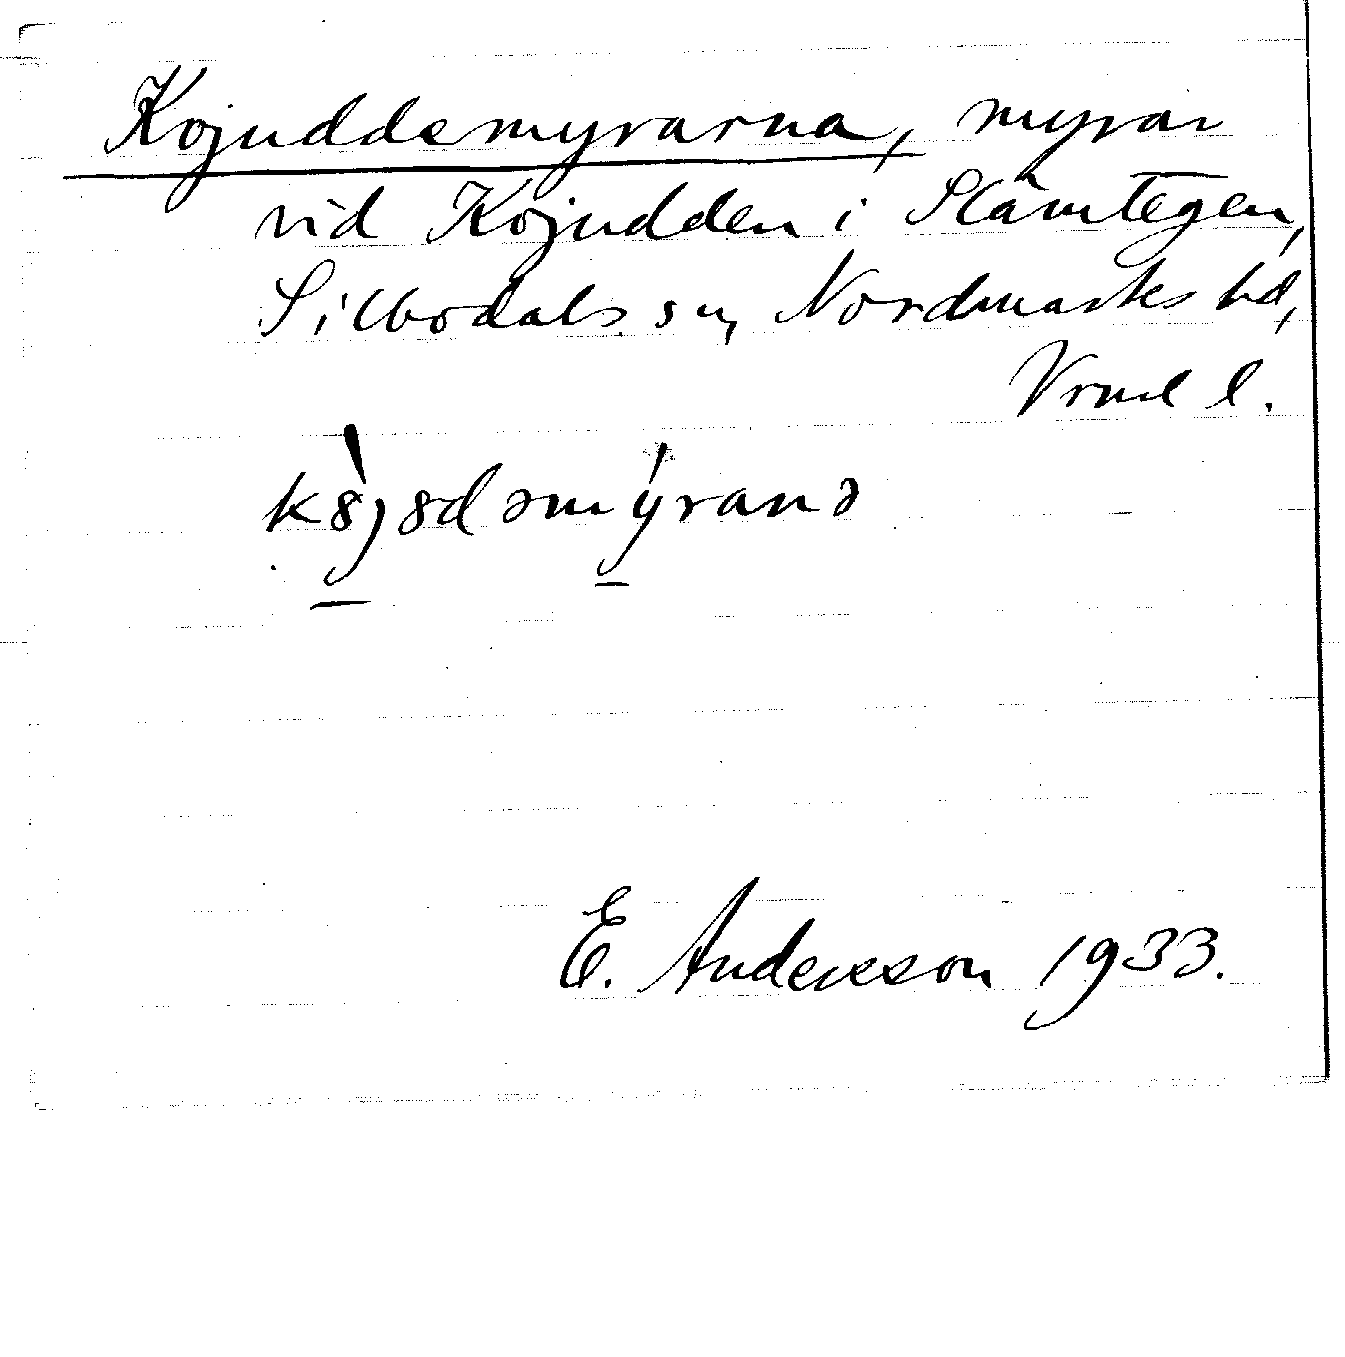 Kojuddsmyrarna, myrar
vid Kojudden i Slävitegen,
Silbodals sn, Nordmarks hd,
Vrml l.
k8̀j8dəmýranə
E. Andersson 1933.